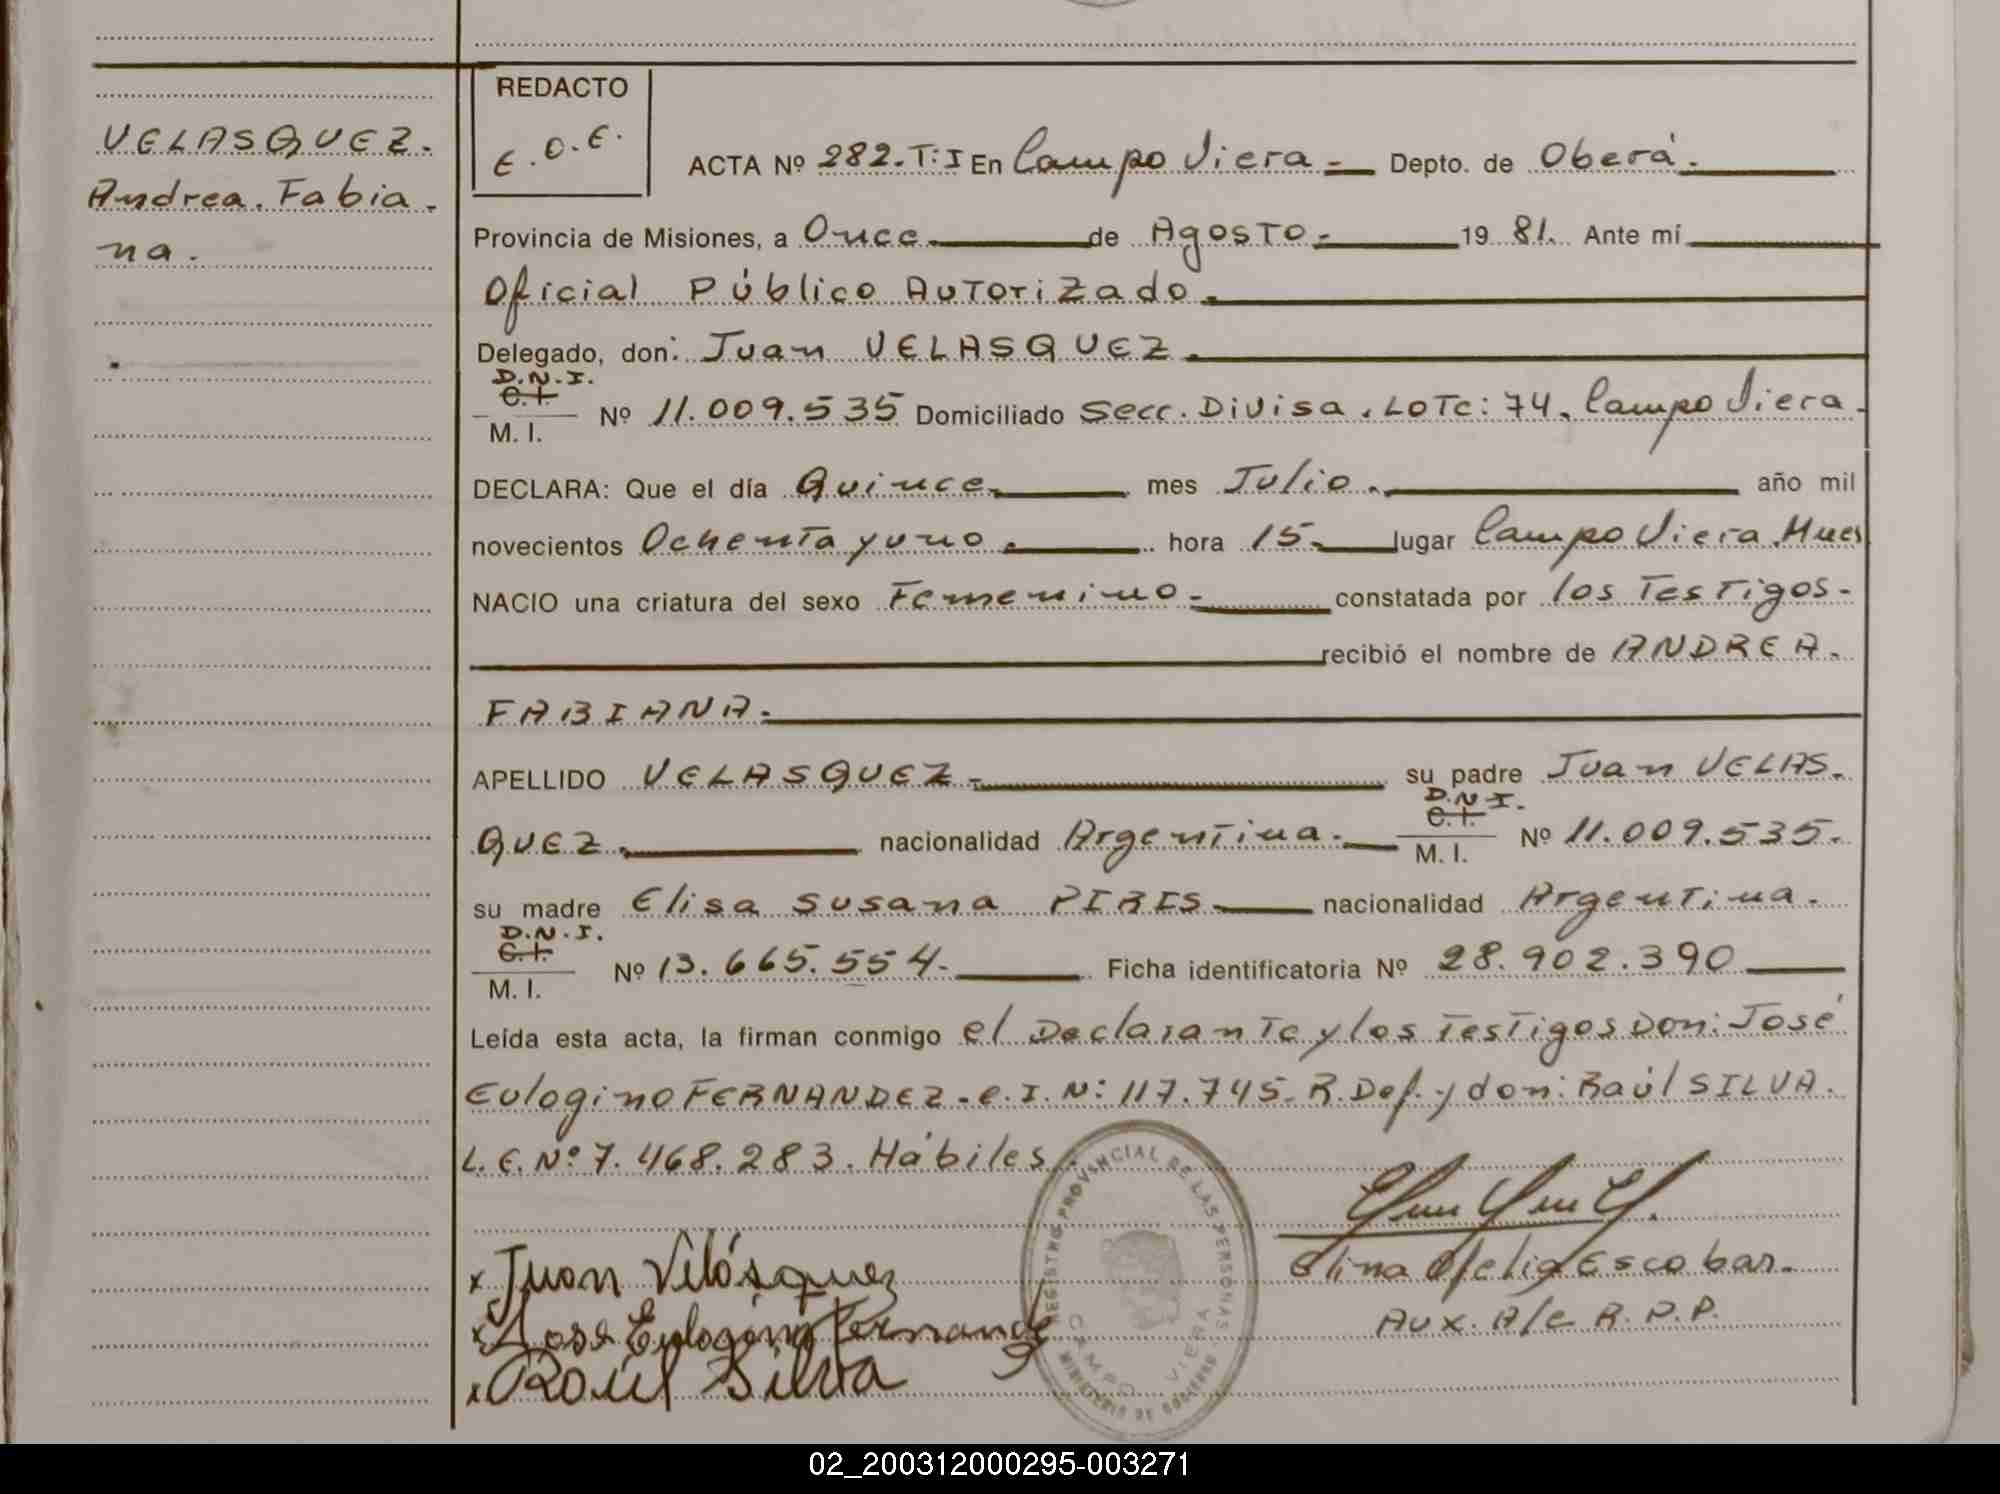 REDACTO
E.O.E.
VELASQUEZ.
Andrea. Fabia.
na.
ACTA Nº 282.T:I En Campo Viera.- Depto. de Oberá.
Provincia de Misiones, a Once. de Agosto.- 19 81. Ante mí
Oficial Público Autorizado.
Delegado, don: Juan VELASQUEZ.
D.N.I.
C.I.
M. I. Nº 11.009.535 Domiciliado Secc. Divisa. Lote: 74. Campo Viera.
DECLARA: Que el día Quince. mes Julio.- año mil
novecientos Ochenta y uno. hora 15. lugar Campo Viera. Mnes
NACIO una criatura del sexo Femenino.- constatada por los Testigos-
recibió el nombre de ANDREA.
FABIANA.
APELLIDO VELASQUEZ.- su padre Juan VELAS.
D.N.I.
C.I.
QUEZ. nacionalidad Argentina. M. I. Nº 11.009.535.
su madre Elisa Susana PIRIS. nacionalidad Argentina.
D.N.I.
C.I.
M. I. Nº 13.665.554. Ficha identificatoria Nº 28.902.390
Leída esta acta, la firman conmigo el Declarante y los Testigos Don: José
Eulogino FERNANDEZ. C.I. N: 117.745. R.Def. y don: Raúl SILVA.
L.E. Nº 7.468.283. Hábiles.
x Juan Velásquez
x José Eulogino Fernandez
x Raúl Silva
REGISTRO PROVINCIAL DE LAS PERSONAS
CAMPO VIERA
MINISTERIO DE GOBIERNO
Elina Ofelia Escobar.
Aux. A/C R.P.P.
02_200312000295-003271